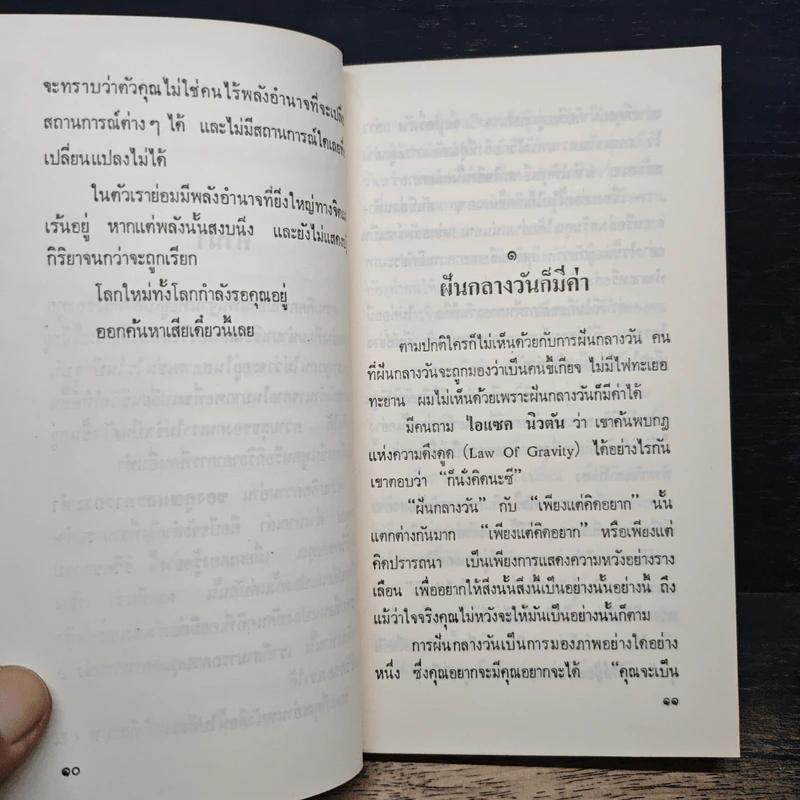 จะทราบว่าตัวคุณไม่ใช่คนไร้พลังอำนาจที่จะ
สถานการณ์ต่าง ๆ ได้ และไม่มีสถานการณ์ใดเลย
เปลี่ยนแปลงไม่ได้
ในตัวเราย่อมมีพลังอำนาจที่ยิ่งใหญ่ทาง
เร้นอยู่ หากแต่พลังนั้นสงบนิ่ง และยังไม่แสดง
กิริยาจนกว่าจะถูกเรียก
โลกใหม่ทั้งโลกกำลังรอคุณอยู่
ออกค้นหาเสียเดี๋ยวนี้เลย
๑๐
๑
ฝันกลางวันก็มีค่า
ตามปกติใครก็ไม่เห็นด้วยกับการฝันกลางวัน คน
ที่ฝันกลางวันจะถูกมองว่าเป็นคนขี้เกียจ ไม่มีไฟทะเยอ
ทะยาน ผมไม่เห็นด้วยเพราะฝันกลางวันก็มีค่าได้
มีคนถาม ไอแซค นิวตัน ว่า เขาค้นพบกฎ
แห่งความดึงดูด (Law Of Gravity) ได้อย่างไรกัน
เขาตอบว่า “ก็นั่งคิดนะซี”
“ฝันกลางวัน” กับ “เพียงแต่คิดอยาก” นั้น
แตกต่างกันมาก “เพียงแต่คิดอยาก” หรือเพียงแต่
คิดปรารถนา เป็นเพียงการแสดงความหวังอย่างราง
เลือน เพื่ออยากให้สิ่งนั้นสิ่งนี้เป็นอย่างนั้นอย่างนี้ ถึง
แม้ว่าใจจริงคุณไม่หวังจะให้มันเป็นอย่างนั้นก็ตาม
การฝันกลางวันเป็นการมองภาพอย่างใดอย่าง
หนึ่ง ซึ่งคุณอยากจะมีคุณอยากจะได้ “คุณจะเป็น
๑๑